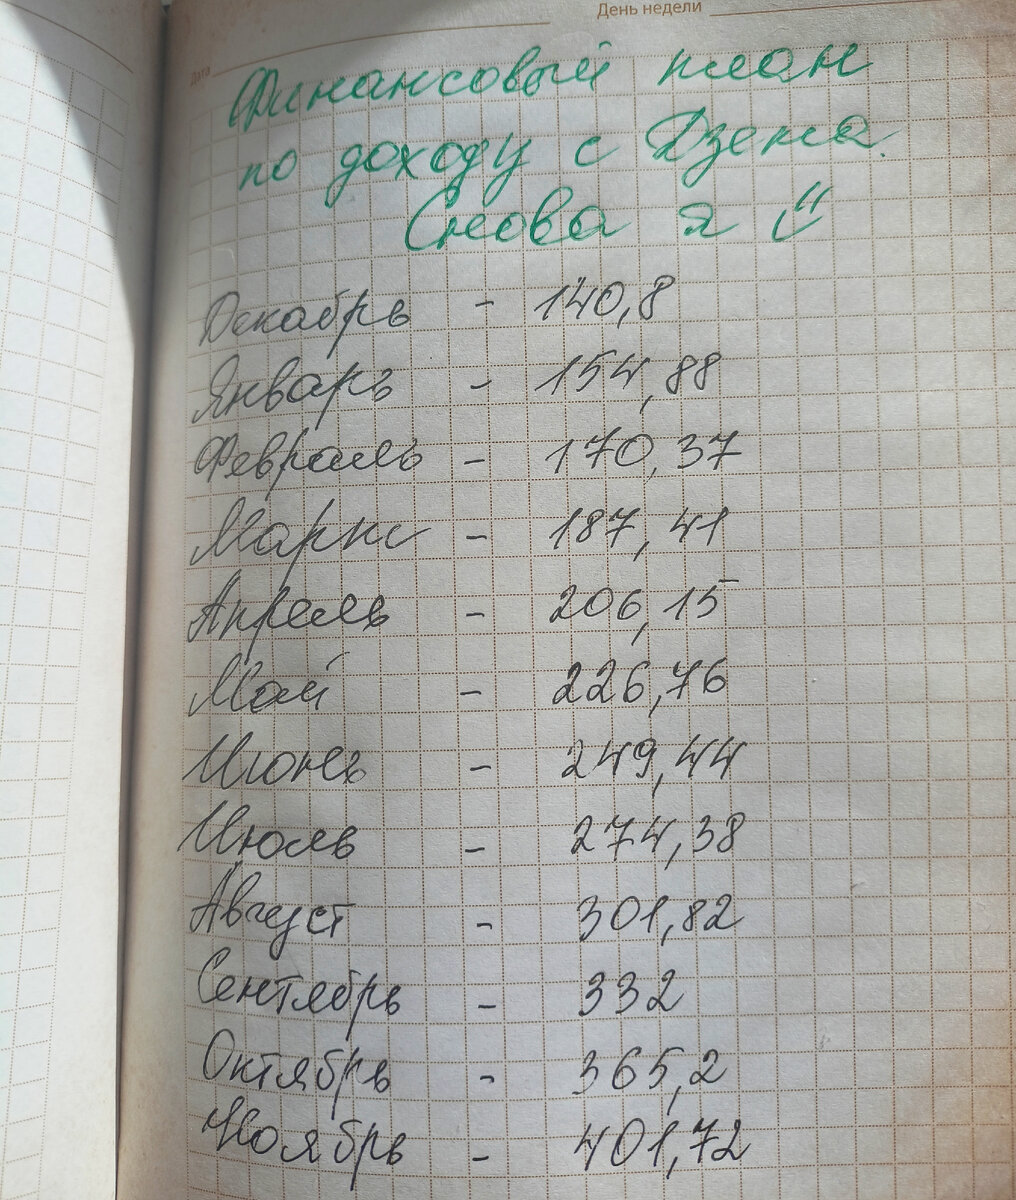 День недели
Дата
Финансовый план
по доходу с Дзена.
Снова я
Декабрь - 140,8
Январь - 154,88
Февраль - 170,37
Март - 187,41
Апрель - 206,15
Май - 226,76
Июнь - 249,44
Июль - 274,38
Август - 301,82
Сентябрь - 332
Октябрь - 365,2
Ноябрь - 401,72